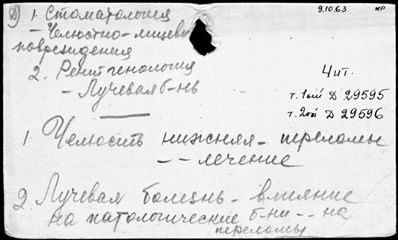 9.10.63
1. Стоматология
- Челюстно-лицевые
повреждения
2. Рентгенология
- Лучевая б-нь
Чит.
т. 1ый Д 29595
т. 2ой Д 29596
1. Челюсть нижняя - переломы
- - лечение
2. Лучевая болезнь - влияние
на патологические б-ни - - на
переломы